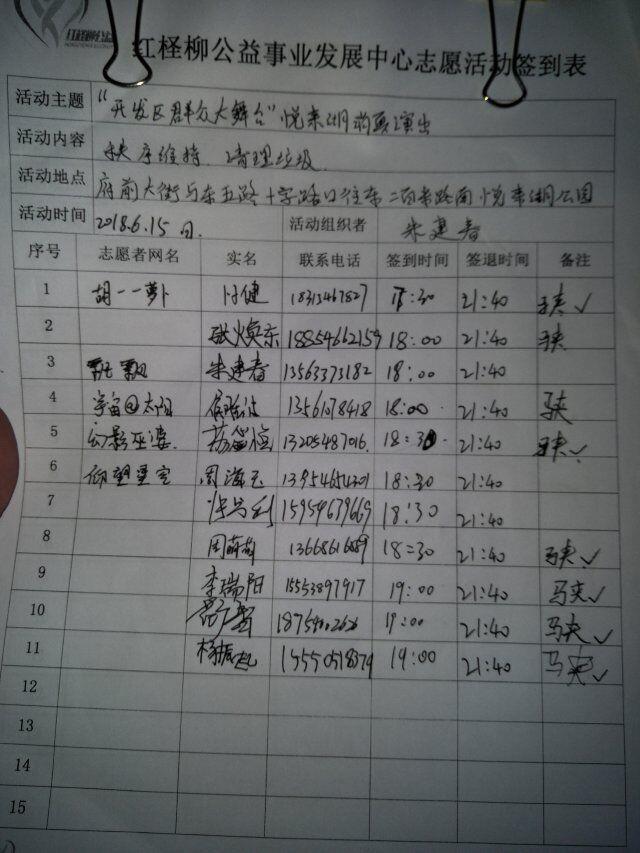 红柽柳公益事业发展中心志愿活动签到表
活动主题 “开发区群众大舞台”悦来湖消夏演出
活动内容 秩序维持、清理垃圾
活动地点 府前大街与东五路十字路口往东二百米路南悦来湖公园
活动时间 2018.6.15日. 活动组织者 朱建春
序号 志愿者网名 实名 联系电话 签到时间 签退时间 备注
1 胡一一萝卜 付健 18313467827 :30 21:40 马夹✓
2 张焕东 18854662159 18:00 21:40 马夹
3 朱建春 13563373182 18:00 21:40
4 宇宙@太阳 13561078418 18:00 21:40 马夹
5 幻影巫婆 13205487016 18:30 21:40 马夹✓
6 仰望星空 周海玉 13954654201 18:30 21:40
7 15954679669 18:30 21:40
8 周萌萌 13668616889 18:30 21:40 马夹✓
9 李瑞阳 15553897917 19:00 21:40 马夹✓
10 19:00 21:40 马夹✓
11 杨振飞 15550518379 19:00 21:40 马夹✓
12
13
14
15